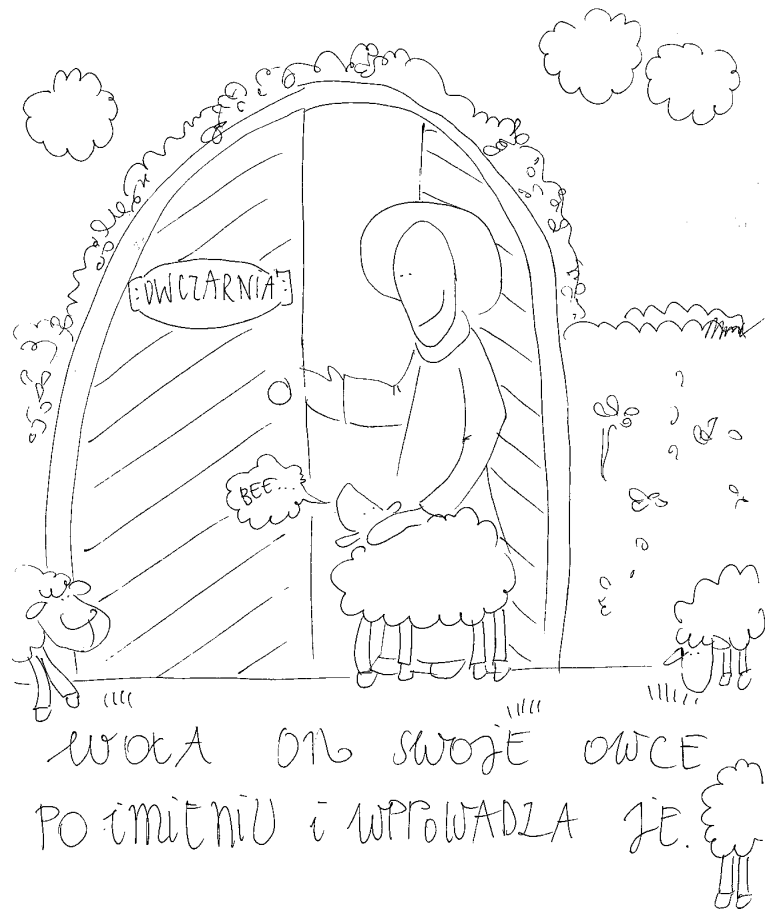 OWCZARNIA
BEE...
WOŁA ON SWOJE OWCE
PO IMIENIU I WPROWADZA JE.